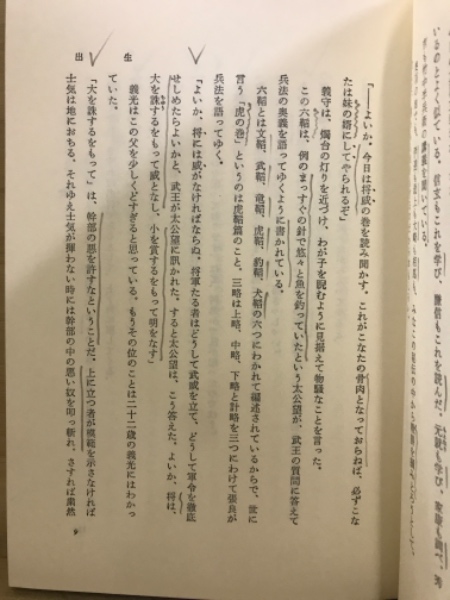 いるのとよく似ている。信玄もこれを学び、謙信もこれを読んだ。
「――よいか、今日は将威の巻を読み聞かす。これがこなたの骨肉となっておらねば、必ずこな
たは妹の婿にしてやられるぞ」
義守は、燭台の灯りを近づけ、わが子を睨むように見据えて物騒なことを言った。
この六韜は、例のまっすぐの針で悠々と魚を釣っていたという太公望が、武王の質問に答えて
兵法の奥義を語ってゆくように書かれている。
六韜とは文韜、武韜、竜韜、虎韜、豹韜、犬韜の六つにわかれて編述されているからで、世に
言う「虎の巻」というのは虎韜篇のこと。三略は上略、中略、下略と計略を三つにわけて張良が
兵法を語ってゆく。
「よいか、将には威がなければならぬ。将軍たる者はどうして武威を立て、どうして軍令を徹底
せしめたらよいかと、武王が太公望に訊かれた。すると太公望は、こう答えた。よいか、将は、
大を誅するをもって威となし、小を賞するをもって明をなす」
義光はこの父を少しくどすぎると思っている。もうその位のことは二十二歳の義光にはわかっ
ていた。
「大を誅するをもって」は、幹部の悪を許すなということだ。上に立つ者が模範を示さなければ
士気は地におちる。それゆえ士気が揮わない時には幹部の中の悪い奴を叩っ斬れ。さすれば粛然
出生
9